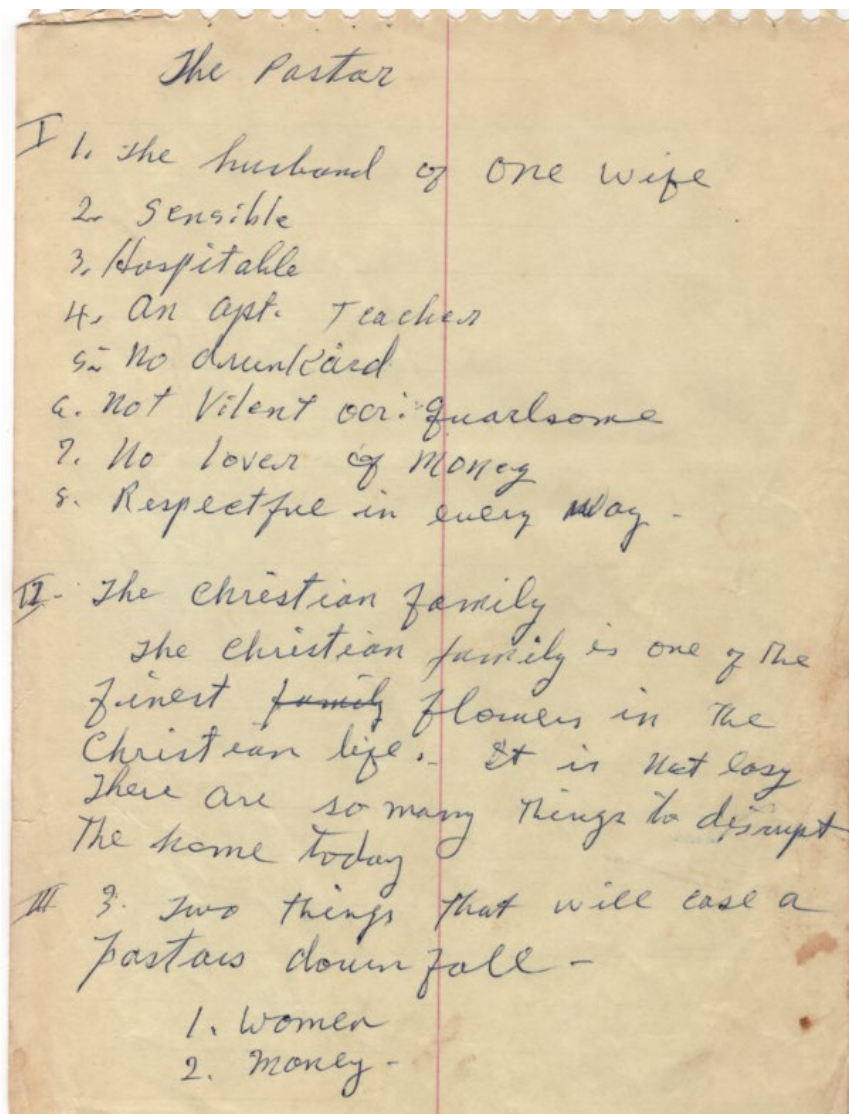 The Pastor
I 1. The husband of one wife
2. Sensible
3. Hospitable
4. An apt. Teacher
5. No drunkard
6. Not Vilent or quarlsome
7. No lover of money
8. Respectful in every way -
II - The Christian family
The Christian family is one of the
finest family flowers in The
Christian life. - It is not easy
There are so many Things to disrupt
The home today
III 3. Two things that will case a
pastors down fall -
1. Women
2. Money -